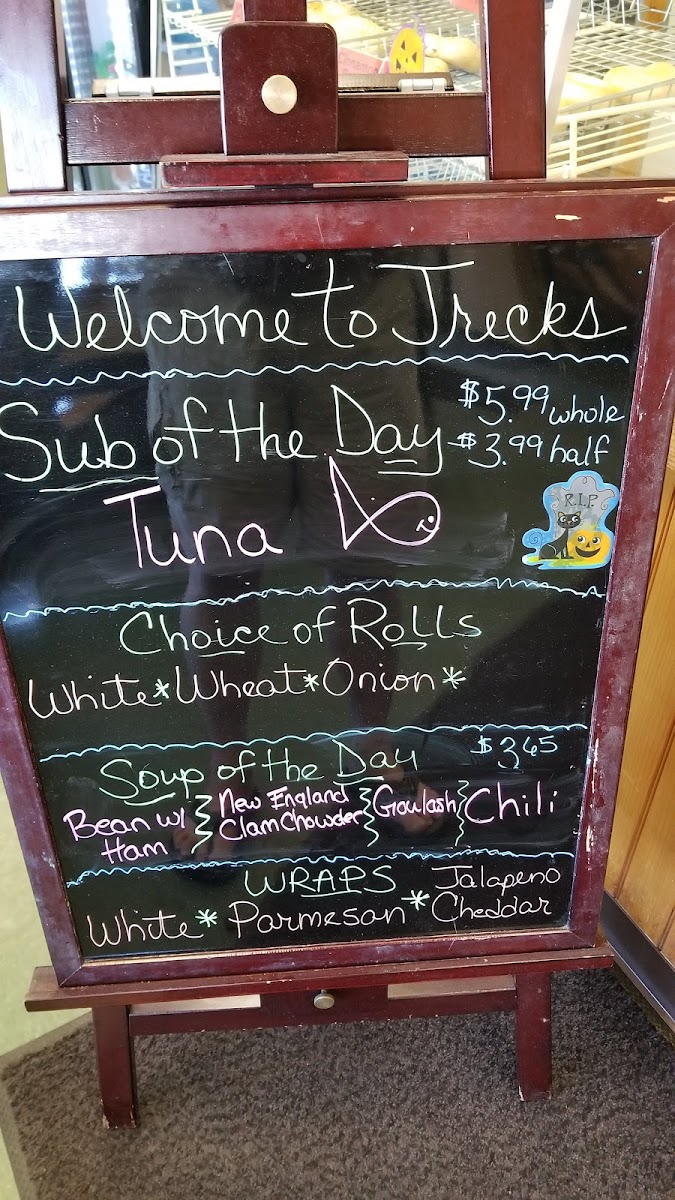 Welcome to Trecks
Sub of the Day
$5.99 whole
$3.99 half
Tuna
R.I.P.
Choice of Rolls
White*Wheat*Onion*
Soup of the Day $3.65
Bean w/
Ham
New England
Clam Chowder
Goulash
Chili
WRAPS
White* Parmesan*
Jalapeno
Cheddar